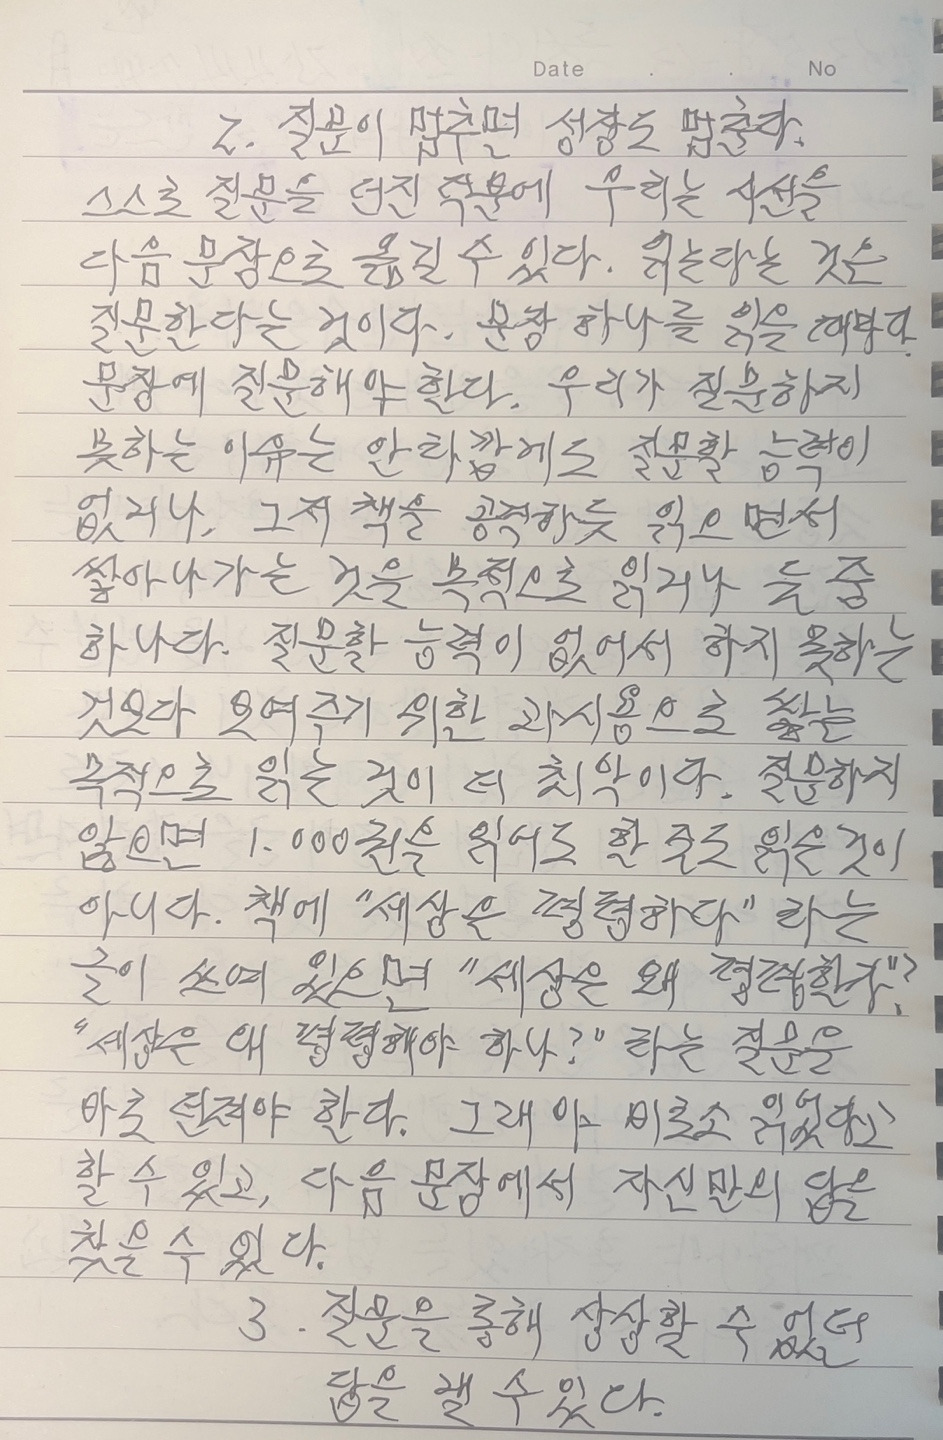 Date . . No
2. 질문이 멈추면 성장도 멈춘다.
스스로 질문을 던진 덕분에 우리는 시선을
다음 문장으로 옮길 수 있다. 읽는다는 것은
질문한다는 것이다. 문장 하나를 읽을 때마다
문장에 질문해야 한다. 우리가 질문하지
못하는 이유는 안타깝게도 질문할 능력이
없거나, 그저 책을 공격하듯 읽으면서
쌓아나가는 것을 목적으로 읽거나 둘 중
하나다. 질문할 능력이 없어서 하지 못하는
것보다 보여주기 위한 과시용으로 쌓는
목적으로 읽는 것이 더 최악이다. 질문하지
않으면 1.000권을 읽어도 한 줄도 읽은 것이
아니다. 책에 "세상은 평평하다" 라는
글이 쓰여 있으면 "세상은 왜 평평한가"?
"세상은 왜 평평해야 하나?" 라는 질문을
바로 던져야 한다. 그래야 비로소 읽었다고
할 수 있고, 다음 문장에서 자신만의 답을
찾을 수 있다.
3. 질문을 통해 상상할 수 없던
답을 낼 수 있다.